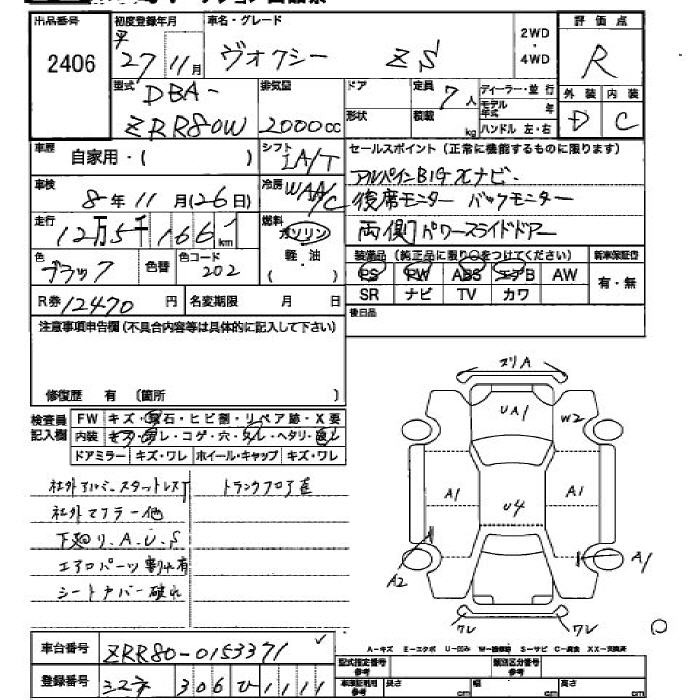 出品番号
2406
初度登録年月
平
27 11月
車名・グレード
ヴオクシー ZS
2WD
・
4WD
評価点
R
外装 内装
D C
型式
DBA-
ZRR80W
排気量
2000cc
ドア
形状
定員
7人
積載
kg
ディーラー・並行
モデル年式 年
ハンドル 左・右
車歴
自家用・( )
シフト
IA/T
セールスポイント(正常に機能するものに限ります)
アルパインBIGXナビ・
後席モニター バックモニター
両側パワースライドドアー
車検
8年11月(26日)
冷房
WAA/C
走行
12万5千166km
燃料
ガソリン
軽・油
( )
色
ブラック
色替
色コード
202
装備品(純正品に限り○をつけてください)
PS PW ABS エアB AW
SR ナビ TV カワ
新車保証書
有・無
R券 12470円
名変期限 月 日
後日品
注意事項申告欄(不具合内容等は具体的に記入して下さい)
修復歴 有〔箇所 〕
検査員
記入欄
FW キズ・飛石・ヒビ割・リペア跡・X要
内装 キズ・スレ・コゲ・穴・ヌレ・ヘタリ・汚レ
ドアミラー キズ・ワレ ホイール・キャップ キズ・ワレ
社外アルミ・スタットレスT
トランクフロア歪
社外マフラー他
下廻り.A.U.S
エアロパーツ割れ有
シートカバー破れ
スリA
UA1
W2
A1
U4
A1
A2
A1
ワレ
ワレ
A-キズ E-エクボ U-凹み W-補修跡 S-サビ C-腐食 XX-交換済
車台番号
ZRR80-0153371
登録番号
306 ひ 1111
型式指定番号
参考
類別区分番号
参考
車検証利用
参考
長さ cm
幅 cm
高さ cm